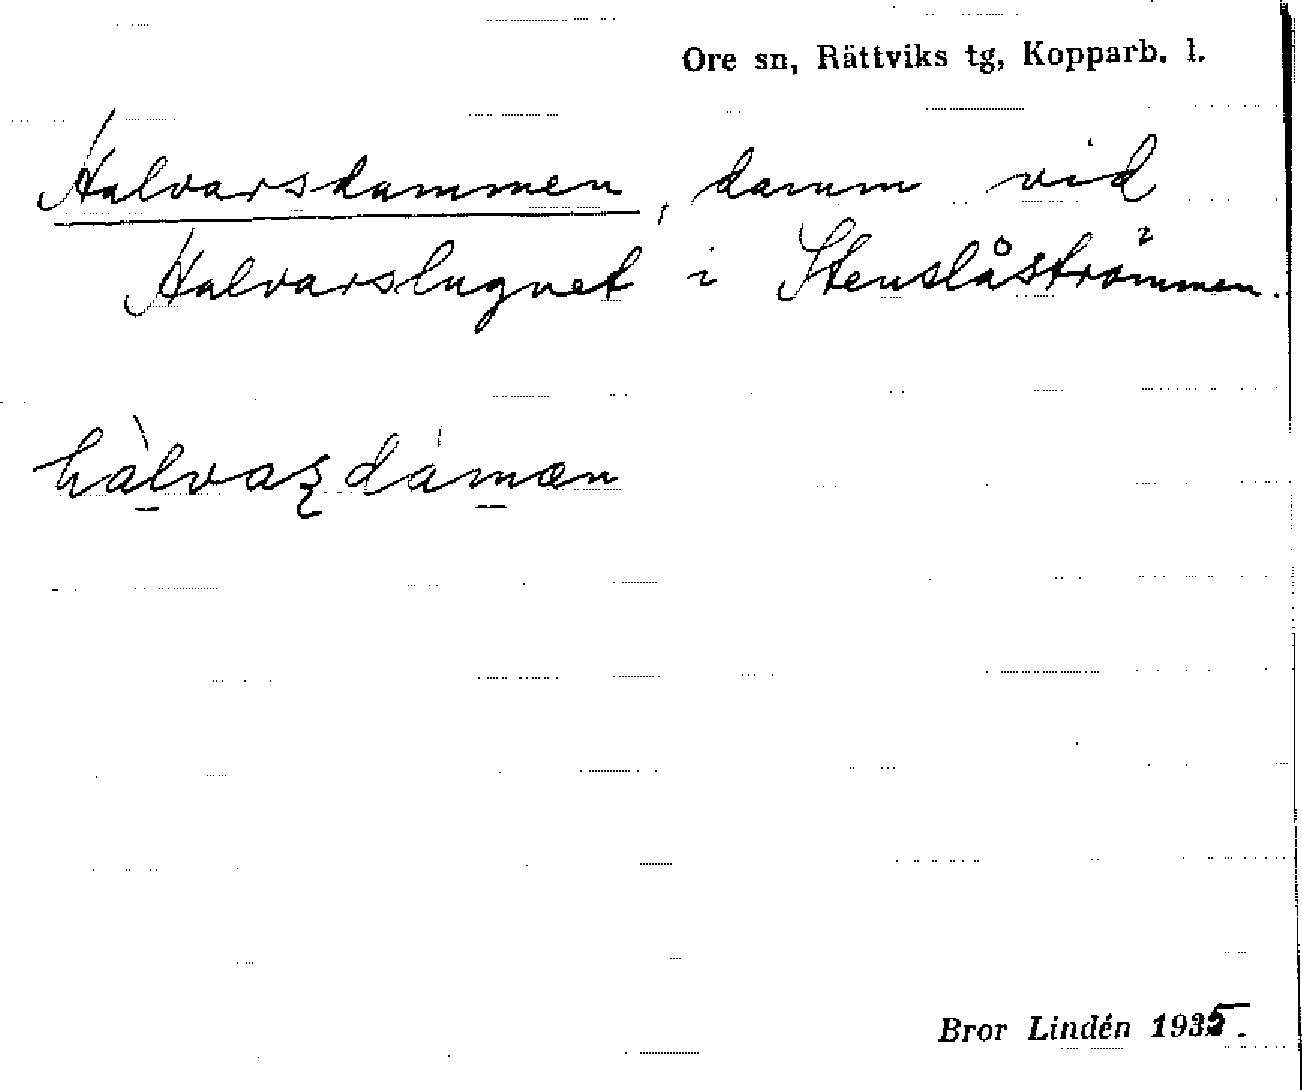 Ore sn, Rättviks tg, Kopparb. l.
Halvarsdammen, damm vid
Halvarslugnet i Stenslåströmmen.
hàlvaʂdámæn
Bror Lindén 1935.